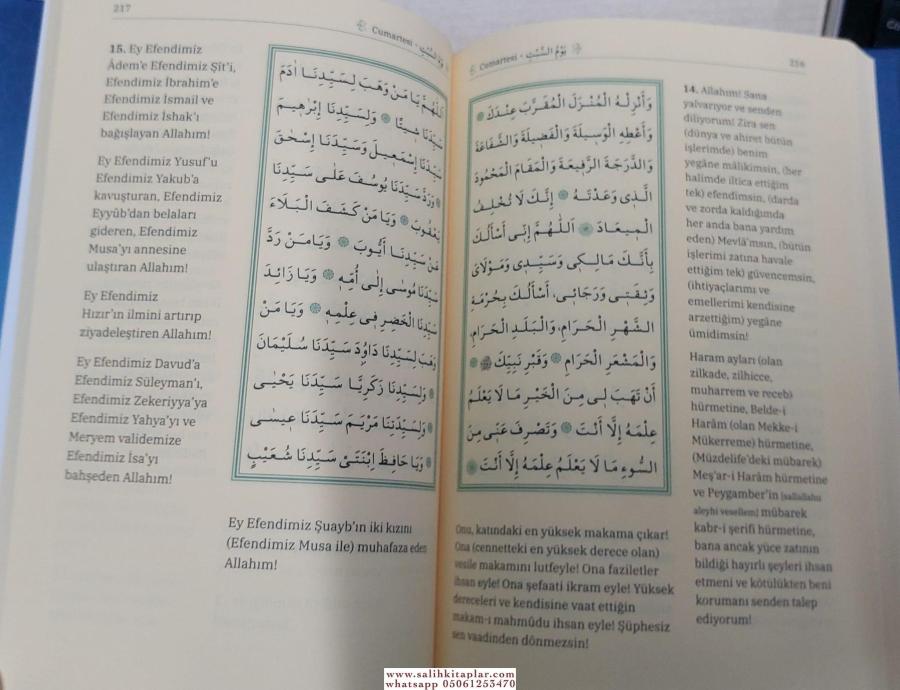 Cumartesi - يَوْمُ السَّبْتِ
216
وَأَنْزِلْهُ الْمُنْزَلَ الْمُقَرَّبَ عِنْدَكَ
وَأَعْطِهِ الْوَسِيلَةَ وَالْفَضِيلَةَ وَالشَّفَاعَةَ
وَالدَّرَجَةَ الرَّفِيعَةَ وَالْمَقَامَ الْمَحْمُودَ
الَّذِى وَعَدْتَهُ ۞ إِنَّكَ لَا تُخْلِفُ
الْمِيعَادَ ۞ اَللّٰهُمَّ إِنِّى أَسْأَلُكَ
بِأَنَّكَ مَالِكِى وَسَيِّدِى وَمَوْلَاىَ
وَثِقَتِى وَرَجَائِى، أَسْأَلُكَ بِحُرْمَةِ
الشَّهْرِ الْحَرَامِ، وَالْبَلَدِ الْحَرَامِ،
وَالْمَشْعَرِ الْحَرَامِ ۞ وَقَبْرِ نَبِيِّكَ ﷺ
أَنْ تَهَبَ لِى مِنَ الْخَيْرِ مَا لَا يَعْلَمُ
عِلْمَهُ إِلَّا أَنْتَ ۞ وَتَصْرِفَ عَنِّى مِنَ
السُّوءِ مَا لَا يَعْلَمُ عِلْمَهُ إِلَّا أَنْتَ ۞
14. Allahım! Sana
yalvarıyor ve senden
diliyorum! Zira sen
(dünya ve ahiret bütün
işlerimde) benim
yegâne mâlikimsin, (her
halimde iltica ettiğim
tek) efendimsin, (darda
ve zorda kaldığımda
her anda bana yardım
eden) Mevlâ'msın, (bütün
işlerimi zatına havale
ettiğim tek) güvencemsin,
(ihtiyaçlarımı ve
emellerimi kendisine
arzettiğim) yegâne
ümidimsin!
Haram ayları (olan
zilkade, zilhicce,
muharrem ve receb)
hürmetine, Belde-i
Harâm (olan Mekke-i
Mükerreme) hürmetine,
(Müzdelife'deki mübarek)
Meş'ar-i Harâm hürmetine
ve Peygamber'in [sallallahu
aleyhi vesellem] mübarek
kabr-i şerifi hürmetine,
bana ancak yüce zatının
bildiği hayırlı şeyleri ihsan
etmeni ve kötülükten beni
korumanı senden talep
ediyorum!
Onu, katındaki en yüksek makama çıkar!
Ona (cennetteki en yüksek derece olan)
vesile makamını lutfeyle! Ona faziletler
ihsan eyle! Ona şefaati ikram eyle! Yüksek
dereceleri ve kendisine vaat ettiğin
makam-ı mahmûdu ihsan eyle! Şüphesiz
sen vaadinden dönmezsin!
217
Cumartesi - يَوْمُ السَّبْتِ
اَللّٰهُمَّ يَا مَنْ وَهَبَ لِسَيِّدِنَا اٰدَمَ
سَيِّدَنَا شِيثًا ۞ وَلِسَيِّدِنَا إِبْرٰهِيمَ
سَيِّدَنَا إِسْمٰعِيلَ وَسَيِّدَنَا إِسْحٰقَ
۞ وَرَدَّ سَيِّدَنَا يُوسُفَ عَلٰى سَيِّدِنَا
يَعْقُوبَ ۞ وَيَا مَنْ كَشَفَ الْبَلَاءَ
عَنْ سَيِّدِنَا أَيُّوبَ ۞ وَيَا مَنْ رَدَّ
سَيِّدَنَا مُوسٰى إِلٰى أُمِّهِ ۞ وَيَا زَائِدَ
سَيِّدِنَا الْخَضِرِ فِى عِلْمِهِ ۞ وَيَا مَنْ
وَهَبَ لِسَيِّدِنَا دَاوُدَ سَيِّدَنَا سُلَيْمَانَ
۞ وَلِسَيِّدِنَا زَكَرِيَّا سَيِّدَنَا يَحْيٰى
۞ وَلِسَيِّدَتِنَا مَرْيَمَ سَيِّدَنَا عِيسٰى
۞ وَيَا حَافِظَ اِبْنَتَىْ سَيِّدِنَا شُعَيْبٍ
15. Ey Efendimiz
Âdem'e Efendimiz Şît'i,
Efendimiz İbrahim'e
Efendimiz İsmail ve
Efendimiz İshak'ı
bağışlayan Allahım!
Ey Efendimiz Yusuf'u
Efendimiz Yakub'a
kavuşturan, Efendimiz
Eyyûb'dan belaları
gideren, Efendimiz
Musa'yı annesine
ulaştıran Allahım!
Ey Efendimiz
Hızır'ın ilmini artırıp
ziyadeleştiren Allahım!
Ey Efendimiz Davud'a
Efendimiz Süleyman'ı,
Efendimiz Zekeriyya'ya
Efendimiz Yahya'yı ve
Meryem validemize
Efendimiz İsa'yı
bahşeden Allahım!
Ey Efendimiz Şuayb'ın iki kızını
(Efendimiz Musa ile) muhafaza eden
Allahım!
www.salihkitaplar.com
whatsapp 05061253470